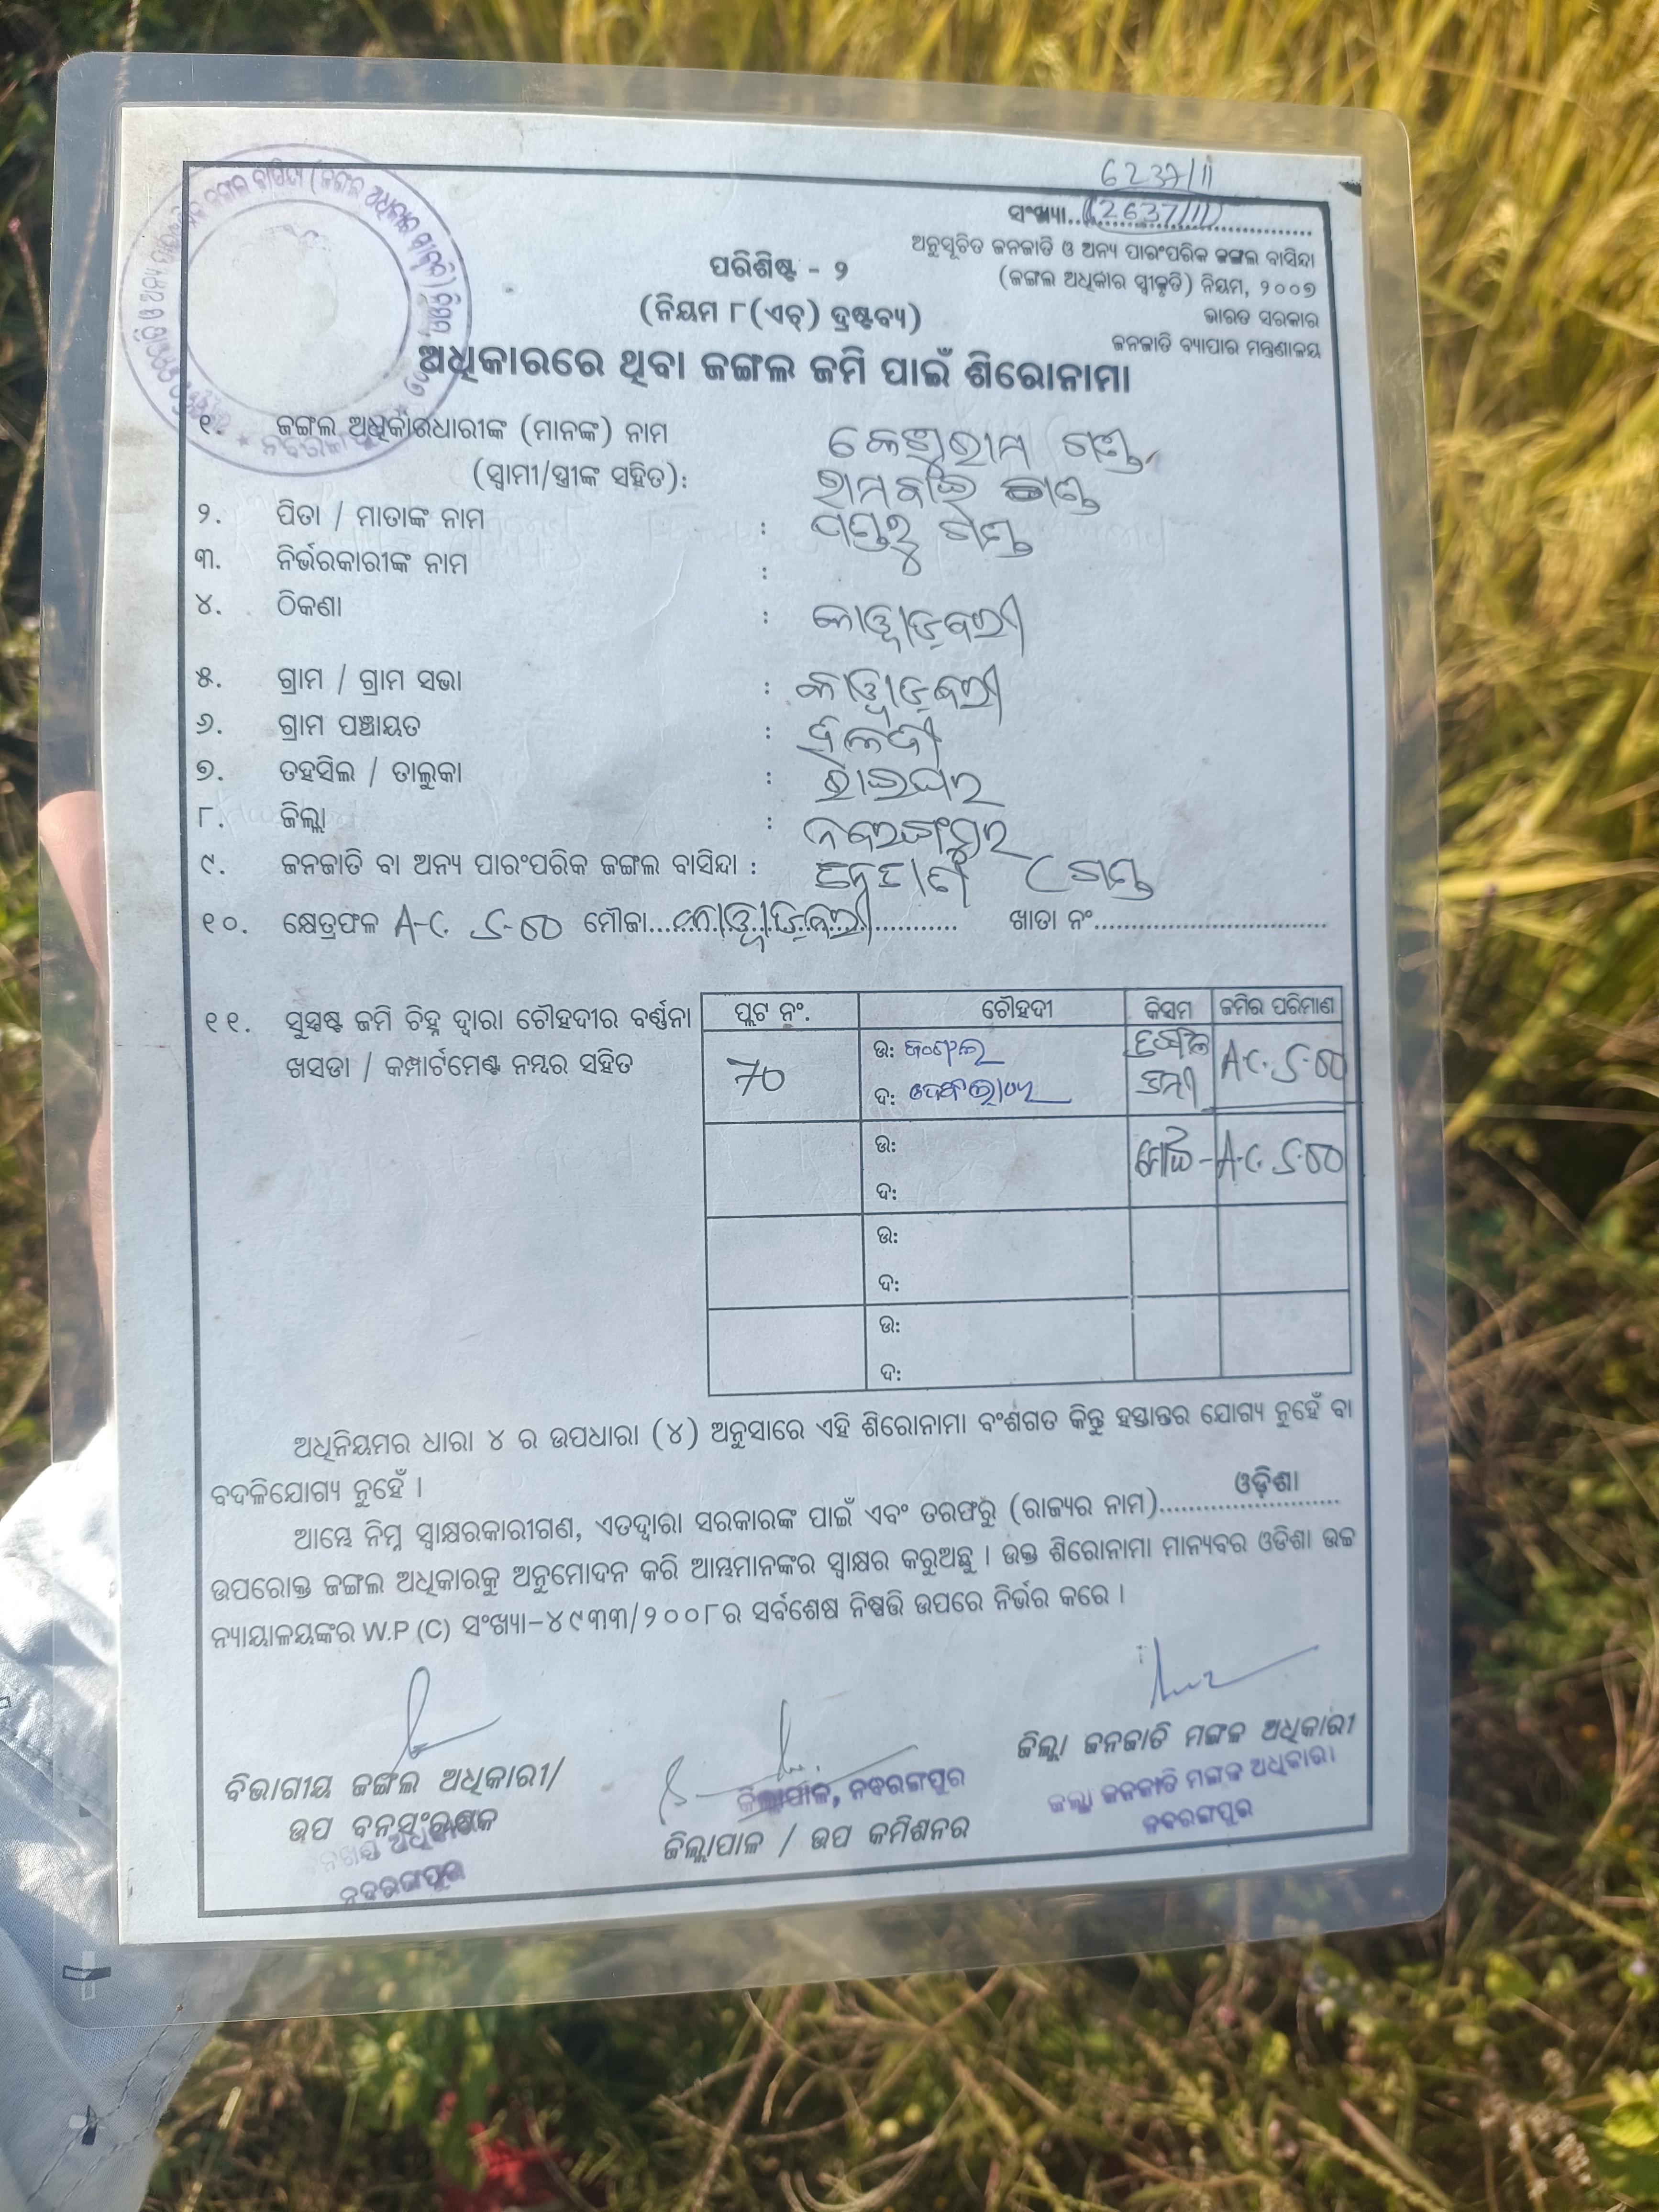 6237/11
ସଂଖ୍ୟା..(2637/11)
ଅନୁସୂଚିତ ଜନଜାତି ଓ ଅନ୍ୟ ପାରଂପରିକ ଜଙ୍ଗଲ ବାସିନ୍ଦା
(ଜଙ୍ଗଲ ଅଧିକାର ସ୍ୱୀକୃତି) ନିୟମ, ୨୦୦୭
ଭାରତ ସରକାର
ଜନଜାତି ବ୍ୟାପାର ମନ୍ତ୍ରଣାଳୟ
ପରିଶିଷ୍ଟ - ୨
(ନିୟମ ୮(ଏଚ୍) ଦ୍ରଷ୍ଟବ୍ୟ)
ଅଧିକାରରେ ଥିବା ଜଙ୍ଗଲ ଜମି ପାଇଁ ଶିରୋନାମା
୧. ଜଙ୍ଗଲ ଅଧିକାରଧାରୀଙ୍କ (ମାନଙ୍କ) ନାମ
(ସ୍ୱାମୀ/ସ୍ତ୍ରୀଙ୍କ ସହିତ):
୨. ପିତା / ମାତାଙ୍କ ନାମ : ଗଣ୍ଡ
୩. ନିର୍ଭରକାରୀଙ୍କ ନାମ :
୪. ଠିକଣା :
୫. ଗ୍ରାମ / ଗ୍ରାମ ସଭା :
୬. ଗ୍ରାମ ପଞ୍ଚାୟତ :
୭. ତହସିଲ / ତାଲୁକା : ରାଇଘର
୮. ଜିଲ୍ଲା : ନବରଙ୍ଗପୁର
୯. ଜନଜାତି ବା ଅନ୍ୟ ପାରଂପରିକ ଜଙ୍ଗଲ ବାସିନ୍ଦା : (ଗଣ୍ଡ
୧୦. କ୍ଷେତ୍ରଫଳ A-C. 5-60 ମୌଜା ଖାତା ନଂ
୧୧. ସୁସ୍ପଷ୍ଟ ଜମି ଚିହ୍ନ ଦ୍ୱାରା ଚୌହଦୀର ବର୍ଣ୍ଣନା
ଖସଡା / କମ୍ପାର୍ଟମେଣ୍ଟ ନମ୍ବର ସହିତ
ପ୍ଲଟ ନଂ. ଚୌହଦୀ କିସମ ଜମିର ପରିମାଣ
70 ଉ: ଜଂଗଲ A-C. 5-60
ଦ:
ଉ: ମୋଟ - A-C. 5-60
ଦ:
ଉ:
ଦ:
ଉ:
ଦ:
ଅଧିନିୟମର ଧାରା ୪ ର ଉପଧାରା (୪) ଅନୁସାରେ ଏହି ଶିରୋନାମା ବଂଶଗତ କିନ୍ତୁ ହସ୍ତାନ୍ତର ଯୋଗ୍ୟ ନୁହେଁ ବା
ବଦଳିଯୋଗ୍ୟ ନୁହେଁ ।
ଆମ୍ଭେ ନିମ୍ନ ସ୍ୱାକ୍ଷରକାରୀଗଣ, ଏତଦ୍ୱାରା ସରକାରଙ୍କ ପାଇଁ ଏବଂ ତରଫରୁ (ରାଜ୍ୟର ନାମ) ଓଡ଼ିଶା
ଉପରୋକ୍ତ ଜଙ୍ଗଲ ଅଧିକାରକୁ ଅନୁମୋଦନ କରି ଆମ୍ଭମାନଙ୍କର ସ୍ୱାକ୍ଷର କରୁଅଛୁ । ଉକ୍ତ ଶିରୋନାମା ମାନ୍ୟବର ଓଡିଶା ଉଚ୍ଚ
ନ୍ୟାୟାଳୟଙ୍କର W.P (C) ସଂଖ୍ୟା-୪୯୩୩/୨୦୦୮ର ସର୍ବଶେଷ ନିଷ୍ପତ୍ତି ଉପରେ ନିର୍ଭର କରେ ।
ବିଭାଗୀୟ ଜଙ୍ଗଲ ଅଧିକାରୀ/
ଉପ ବନସଂରକ୍ଷକ
ନବରଙ୍ଗପୁର
ଜିଲ୍ଲାପାଳ, ନବରଙ୍ଗପୁର
ଜିଲ୍ଲାପାଳ / ଉପ କମିଶନର
ଜିଲ୍ଲା ଜନଜାତି ମଙ୍ଗଳ ଅଧିକାରୀ
ଜିଲ୍ଲା ଜନଜାତି ମଙ୍ଗଳ ଅଧିକାରୀ
ନବରଙ୍ଗପୁର